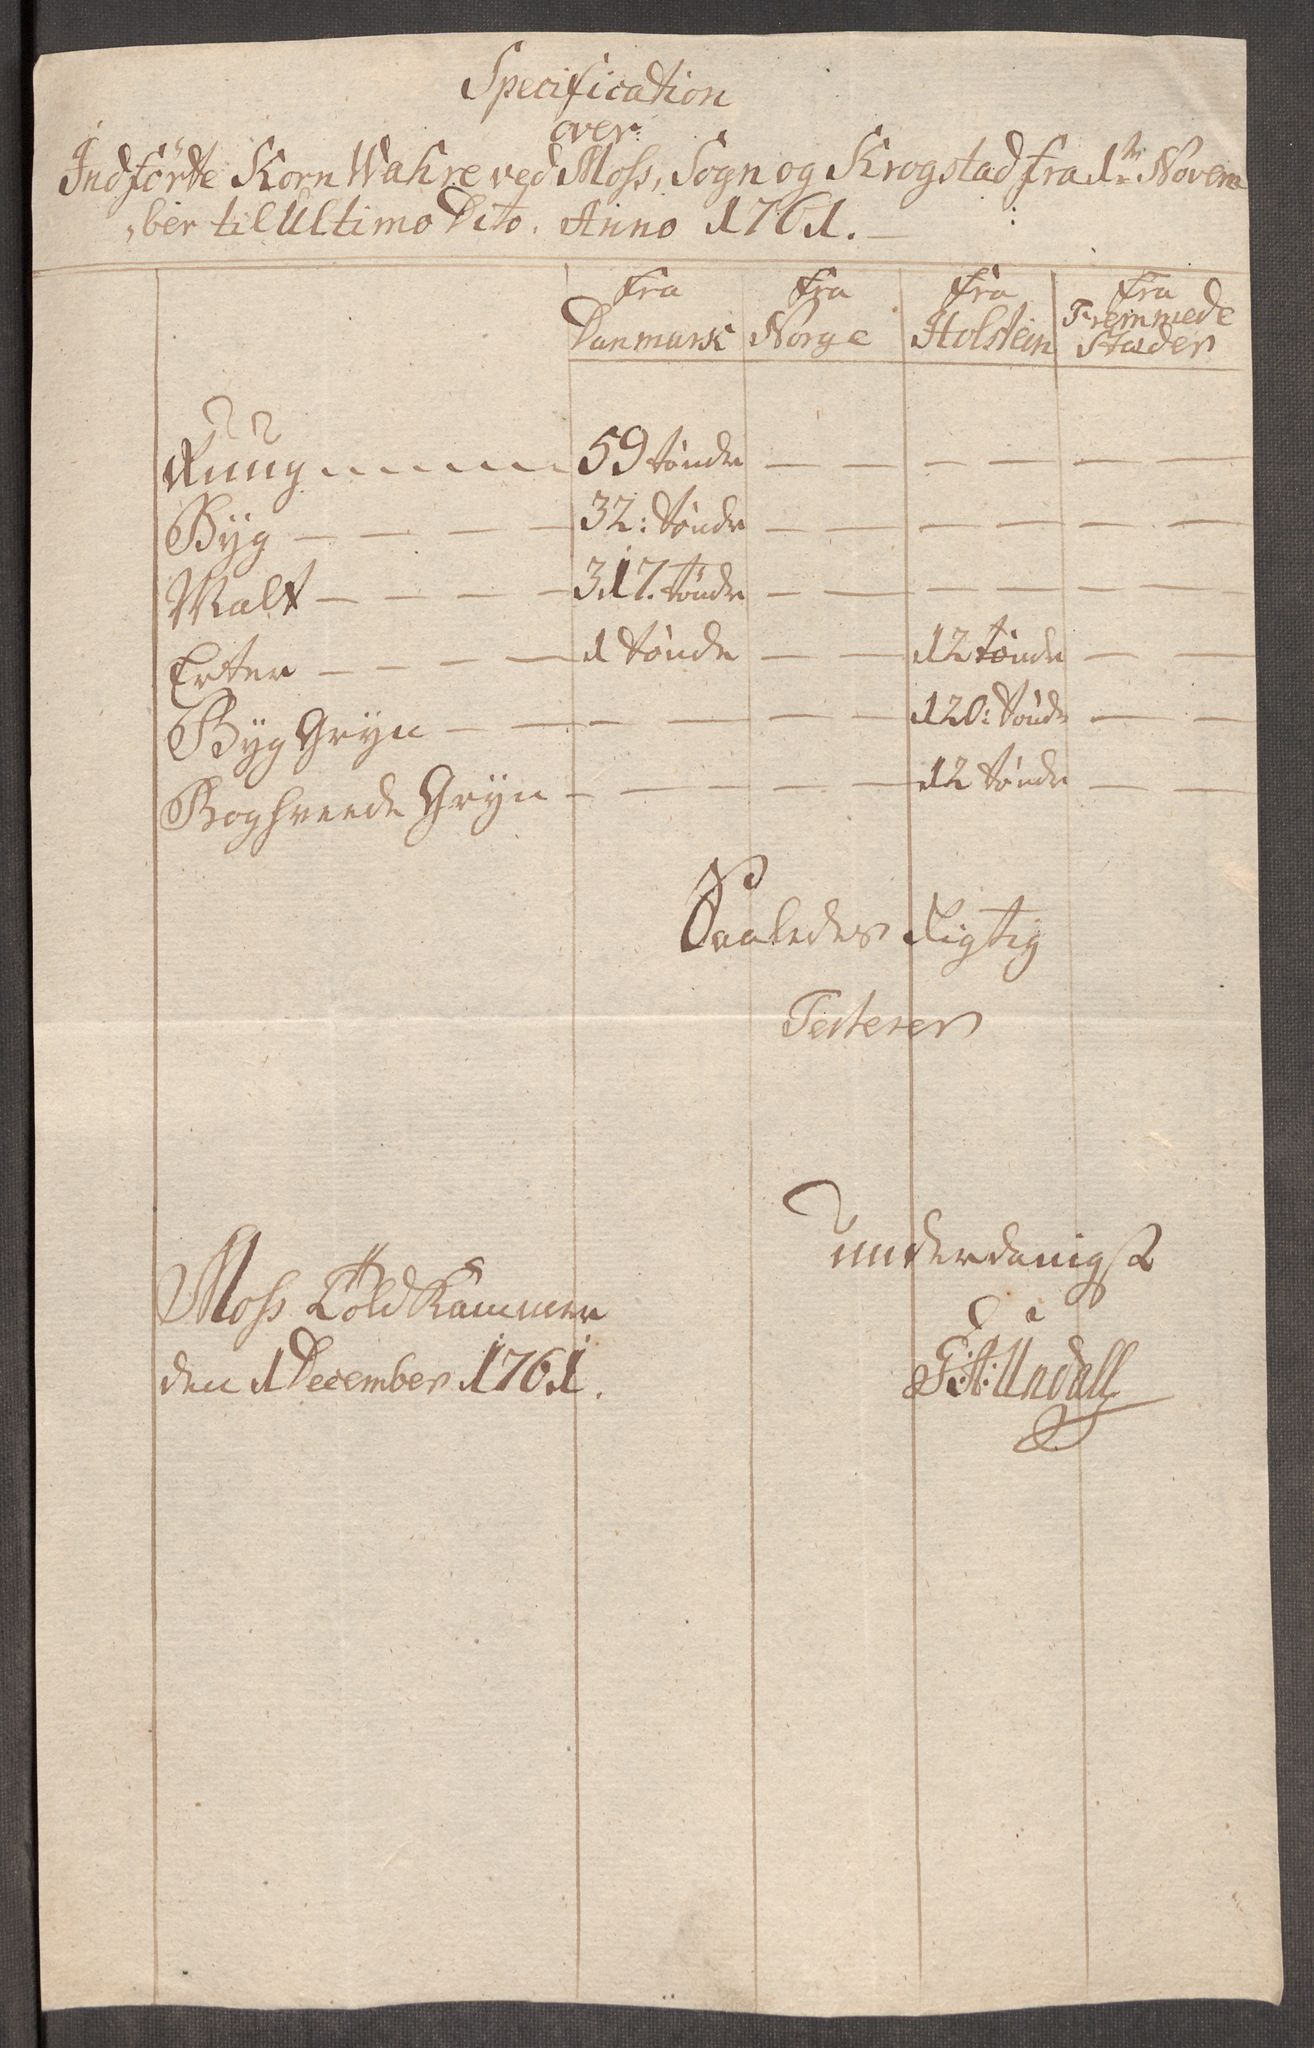 Specification
over
Indförte Korn Wahre ved Moss, Sogn og Krogstad fra 1te Novem
ber til Ultimo Dito. Anno 1761.
fra Danmark fra Norge fra Holstein fra Fremmede Stæder
Ruug 59 tönder — — — — — —
Byg — — — — 32: tönder — — — — — —
Malt — — — — 317. tönder — — — — — —
Erter — — — — 1 tönde — — 12 tönder — —
Byg Gryn — — — — — — 120: tönder — —
Boghvede Gryn — — — — — 12 tönder — —
Saaledes Rigtig
Testerer
underdanigst
Moss Told Kammer
den 1 December 1761.
Undall